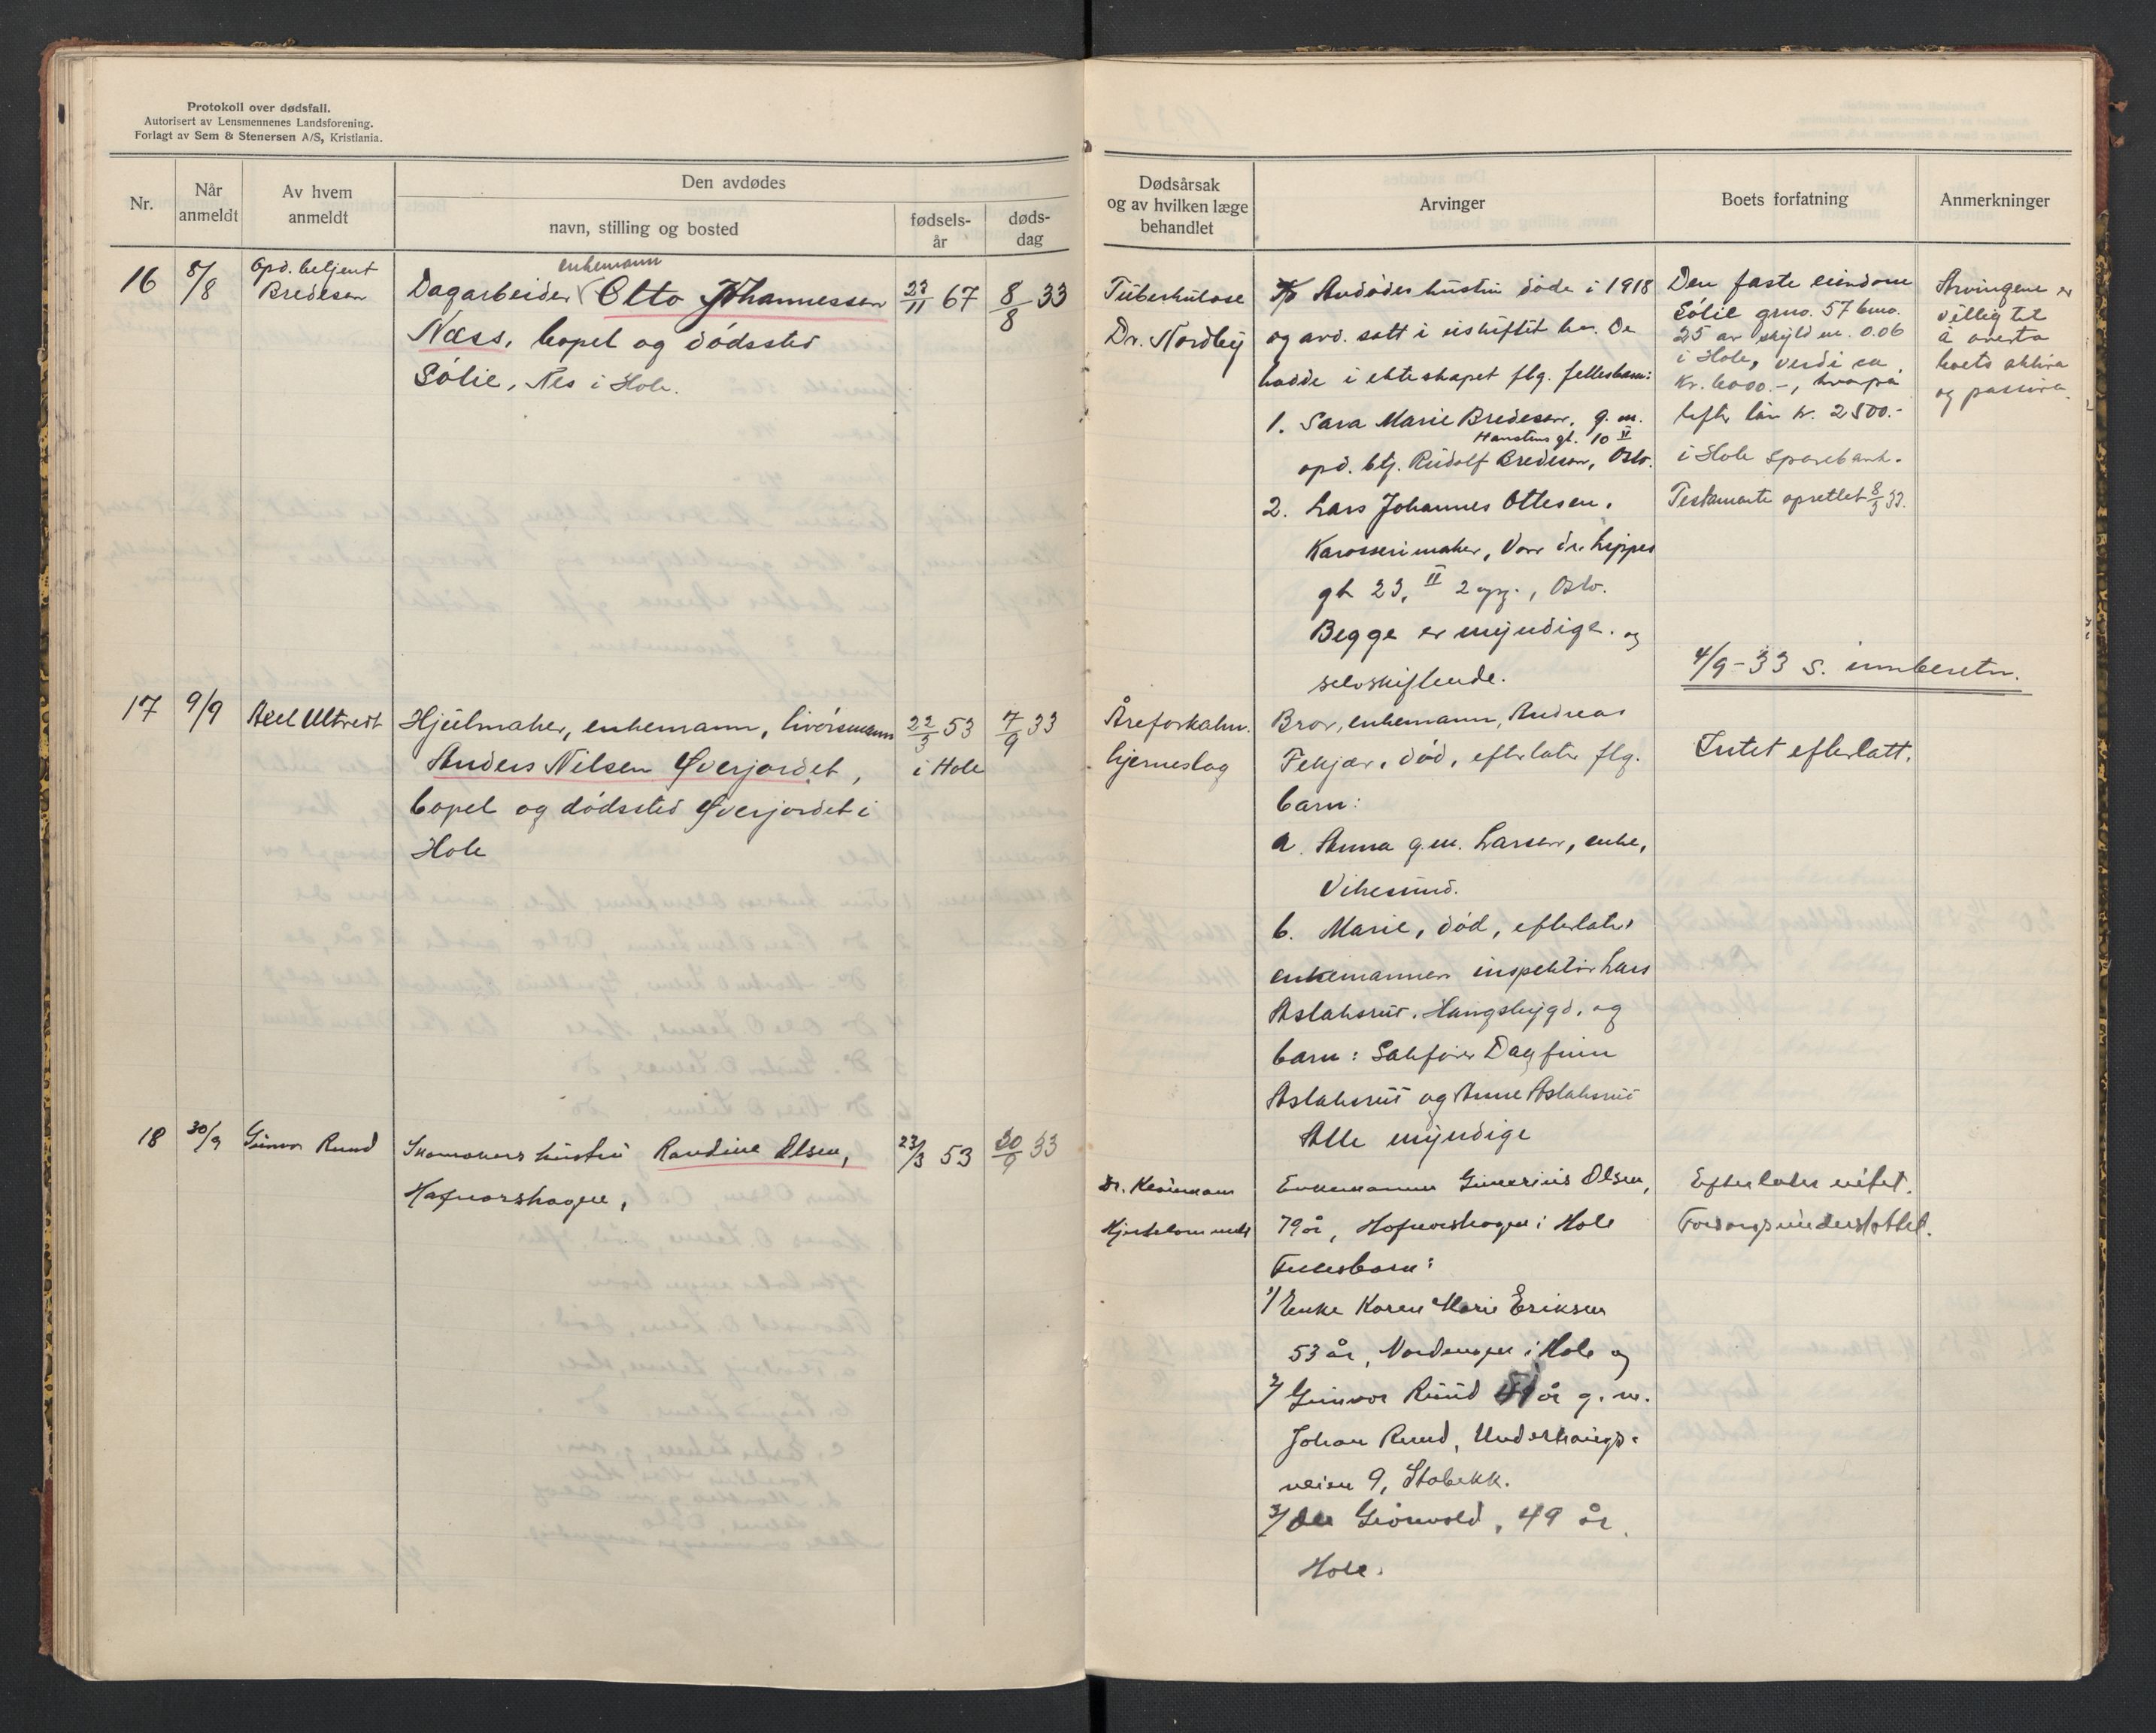 Protokoll over dødsfall.
Autorisert av Lensmennenes Landsforening.
Forlagt av Sem & Stenersen A/S, Kristiania.
Nr.
Når anmeldt
Av hvem anmeldt
Den avdødes
navn, stilling og bosted
fødsels-år
døds-dag
Dødsårsak og av hvilken læge behandlet
Arvinger
Boets forfatning
Anmerkninger
16
8/8
Opd. betjent
Bredesen
enkemann
Dagarbeider Otto Johannessen
Næss, bopel og dødssted
Sólie, Nes i Hole.
23/11 67
8/8 33
Tuberkulose
Dr. Nordby
Avdødes hustru døde i 1918
og avd. satt i uskiftet bo. De
hadde i ekteskapet flg. fellesbarn:
1. Sara Marie Bredesen, g. m.
Hanstens gt. 10 II
opd. btj. Rudolf Bredesen, Oslo.
2. Lars Johannes Ottesen,
Karosserimaker, Jacob
gt 23, II 2 opg., Oslo.
Begge er myndige. og
selvskiftende.
Den faste eiendom
Sólie gno. 57 bno.
25 av skyld m. 0.06
i Hole, verdi ca
Kr. 6000.-, hvorpå
hefter lån kr. 2500.-
i Hole Sparebank.
Testamente oprettet 8/3 33.
4/9-33 s. innberetn.
Arvingene er
villig til
å overta
boets aktiva
og passiva.
17
9/9
Axel Ultvedt
Hjulmaker, enkemann, livørsmann
Anders Nilsen Øverjordet,
bopel og dødssted Øverjordet i
Hole
22/3 53
i Hole
7/9 33
Åreforkalkn.
hjerneslag
Bror, enkemann, Andreas
Fekjær, død, efterlater flg.
barn:
a. Anna g.m. Larsen, enke,
Vikesund.
b. Marie, død, efterlater
enkemannen inspektør Lars
Aslaksrud, Haugsbygd, og
barn: Sakfører Dagfinn
Aslaksrud og Anne Aslaksrud
Alle myndige
Intet efterlatt.
18
30/9
Gunvor Ruud
Skomakers hustru Randine Olsen,
Hafnorshagen,
23/3 53
30/9 33
Dr.
Enkemannen Gunerius Olsen,
79 år, Hafnorshagen i Hole
Fellesbarn:
1/ Enke Karen Marie Eriksen
53 år, i Hole og
2/ Gunvor Ruud 51 år g. m.
Johan Ruud, Underhaugs-
veien 9, Stabekk.
3/ Ole Grønvold, 49 år
Hole.
Efterlater intet.
Forsorgsunderstøttet.